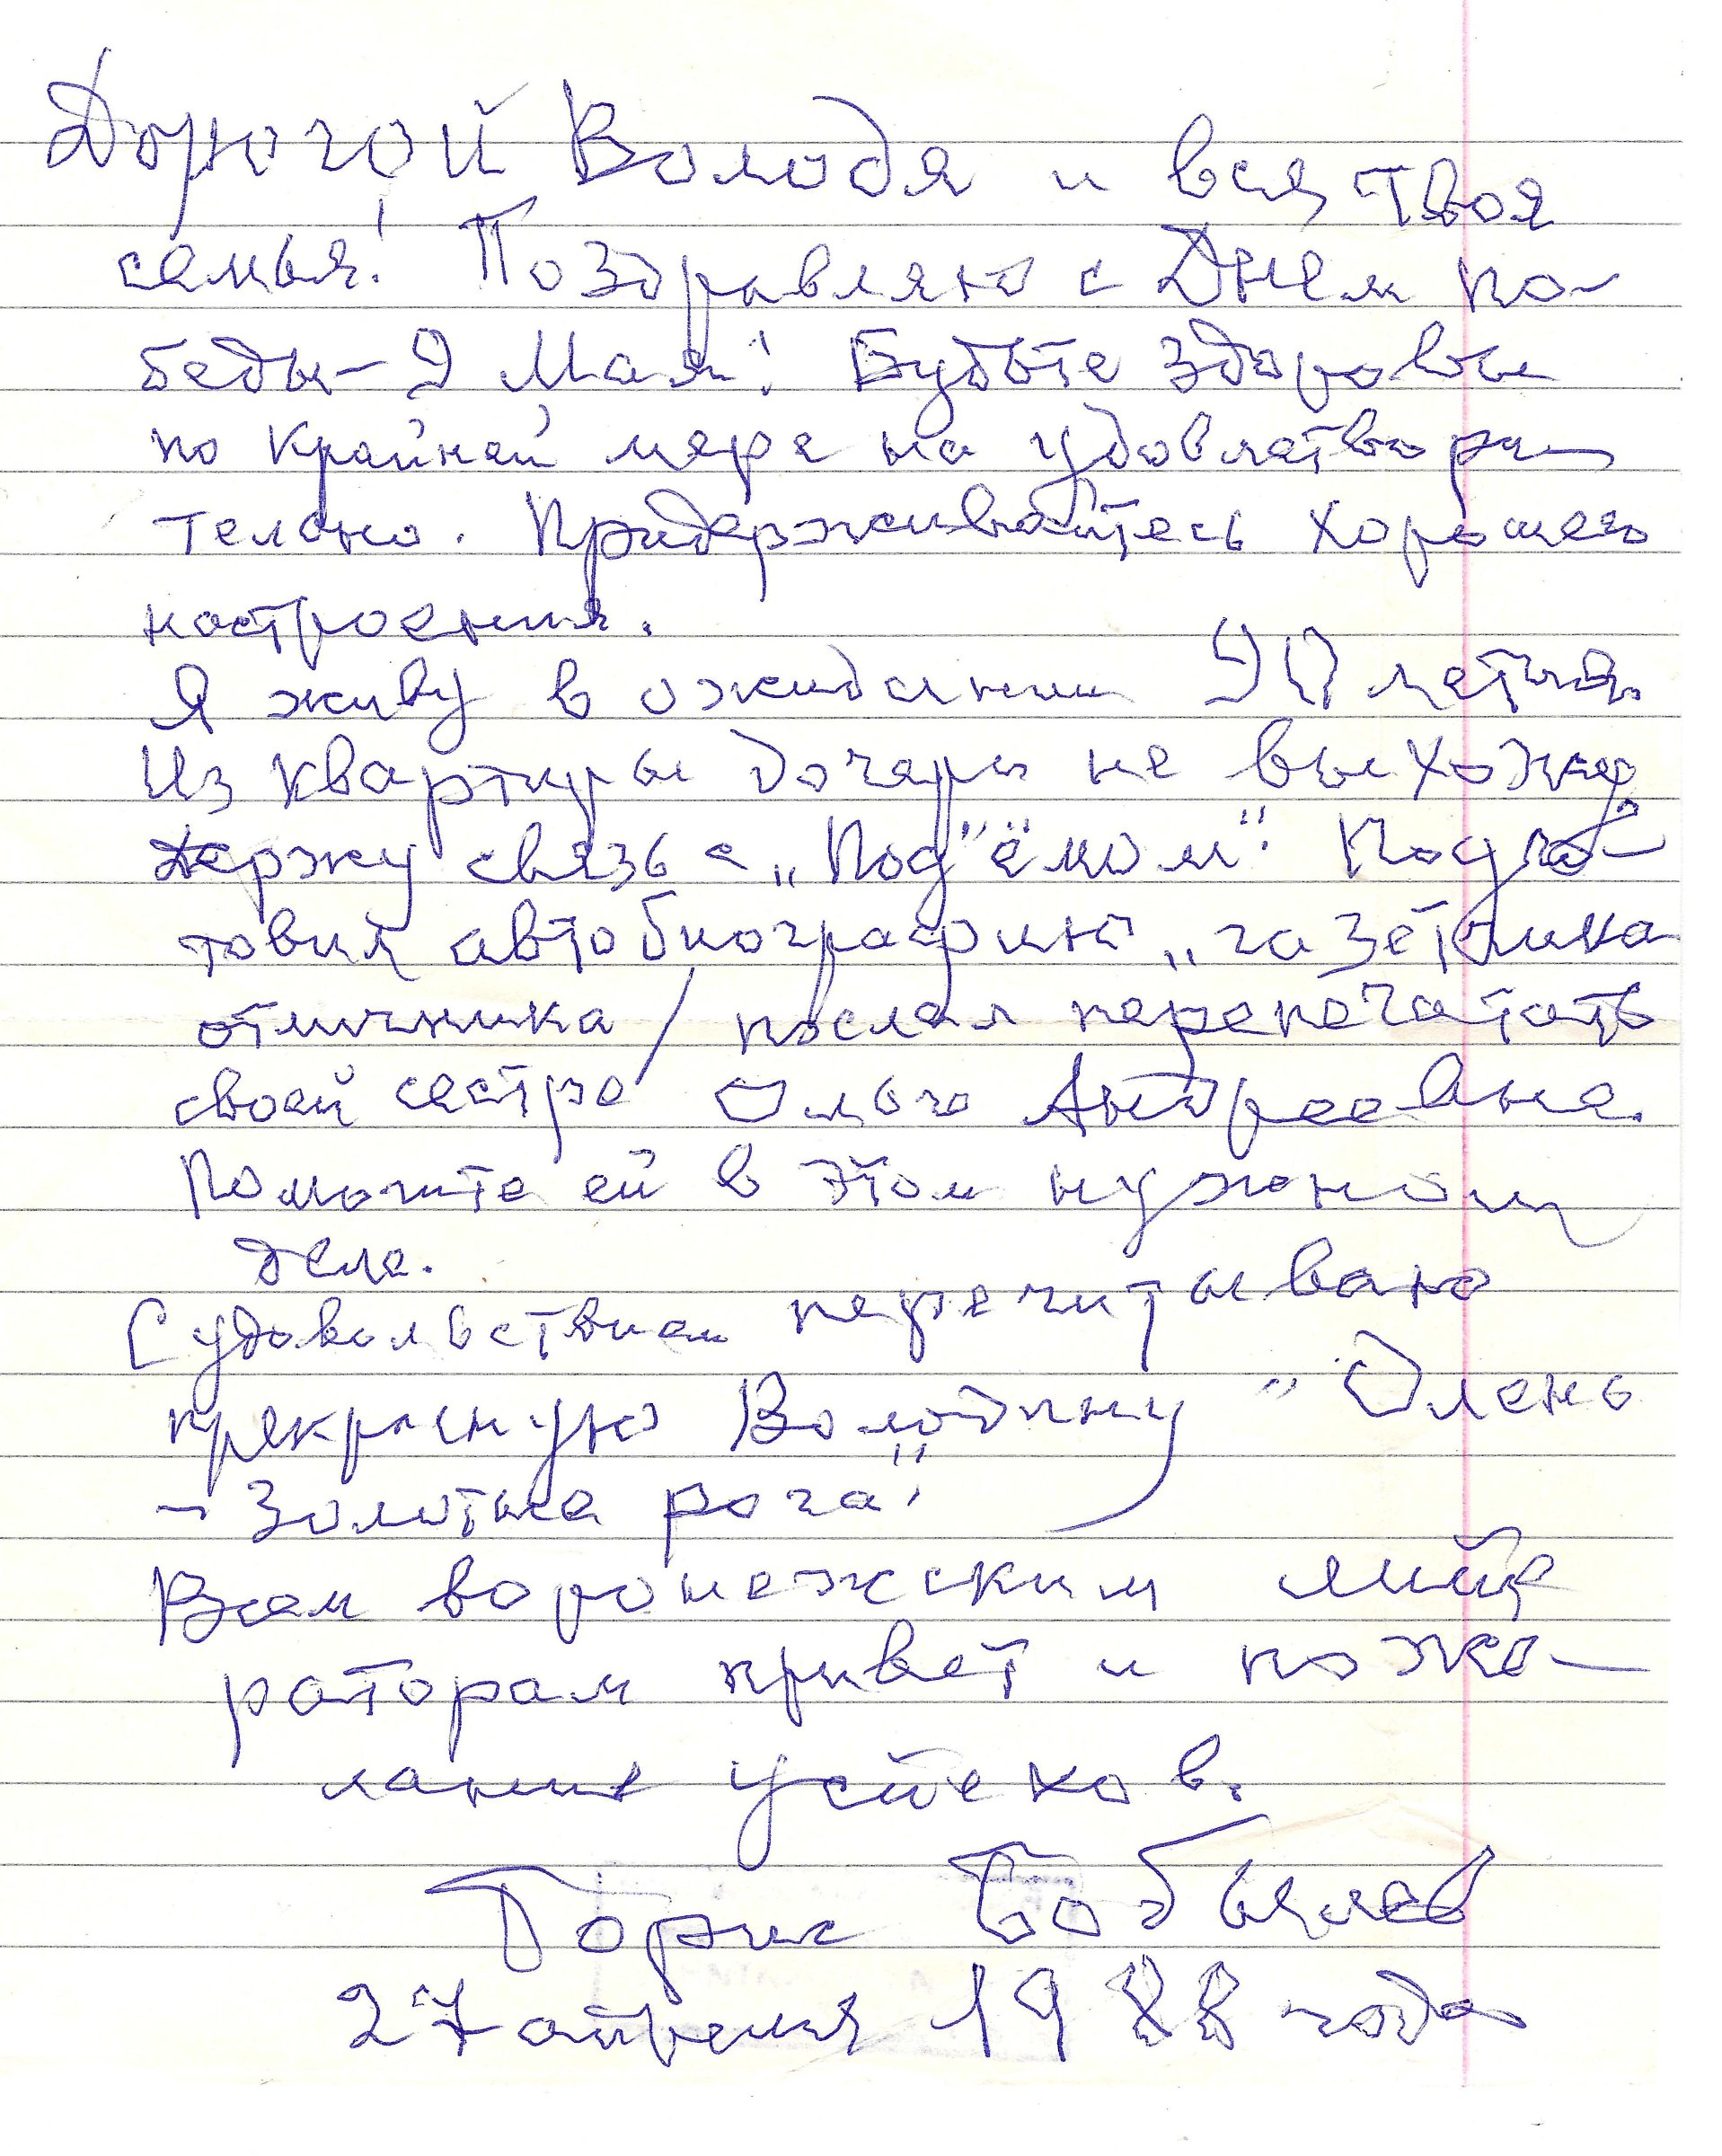 Дорогой Володя и вся твоя
семья! Поздравляю с Днем по-
беды – 9 Мая! Будьте здоровы
по крайней мере на удовлетвори-
тельно. Придерживайтесь хорошего
настроения.
Я живу в ожидании 90 летия.
Из квартиры дочери не выхожу
держу связь с „Под"ёмом". Подго-
товил автобиографию „газетчика
отличника / послал перепечатать
своей сестре Ольге Андреевне.
Помогите ей в этом нужном
деле.
С удовольствием перечитываю
прекрасную Володину "Олень
– Золотые рога"
Всем воронежским
раторам привет и поже-
лание успехов.
Борис Бобылев
27 апреля 1988 года